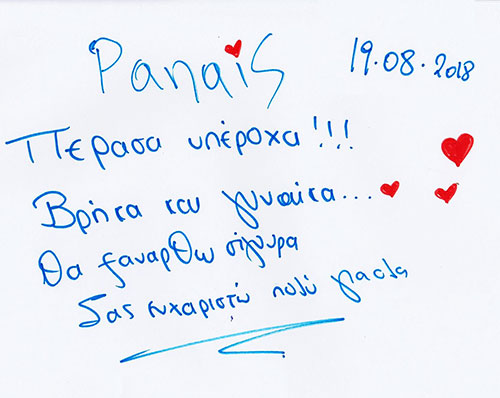 Panais 19.08.2018
Περασα υπέροχα!!!
Βρήκα και γυναίκα...
Θα ξαναρθω σίγουρα
Σας ευχαριστώ πολύ